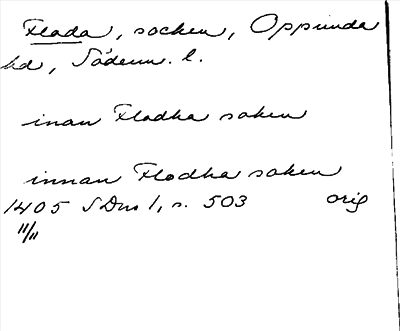 Floda, socken, Oppunda
hd, Söderm. l.
inan Flodha soken
innan Flodha soken
1405 SDns 1, s. 503 orig
11/11